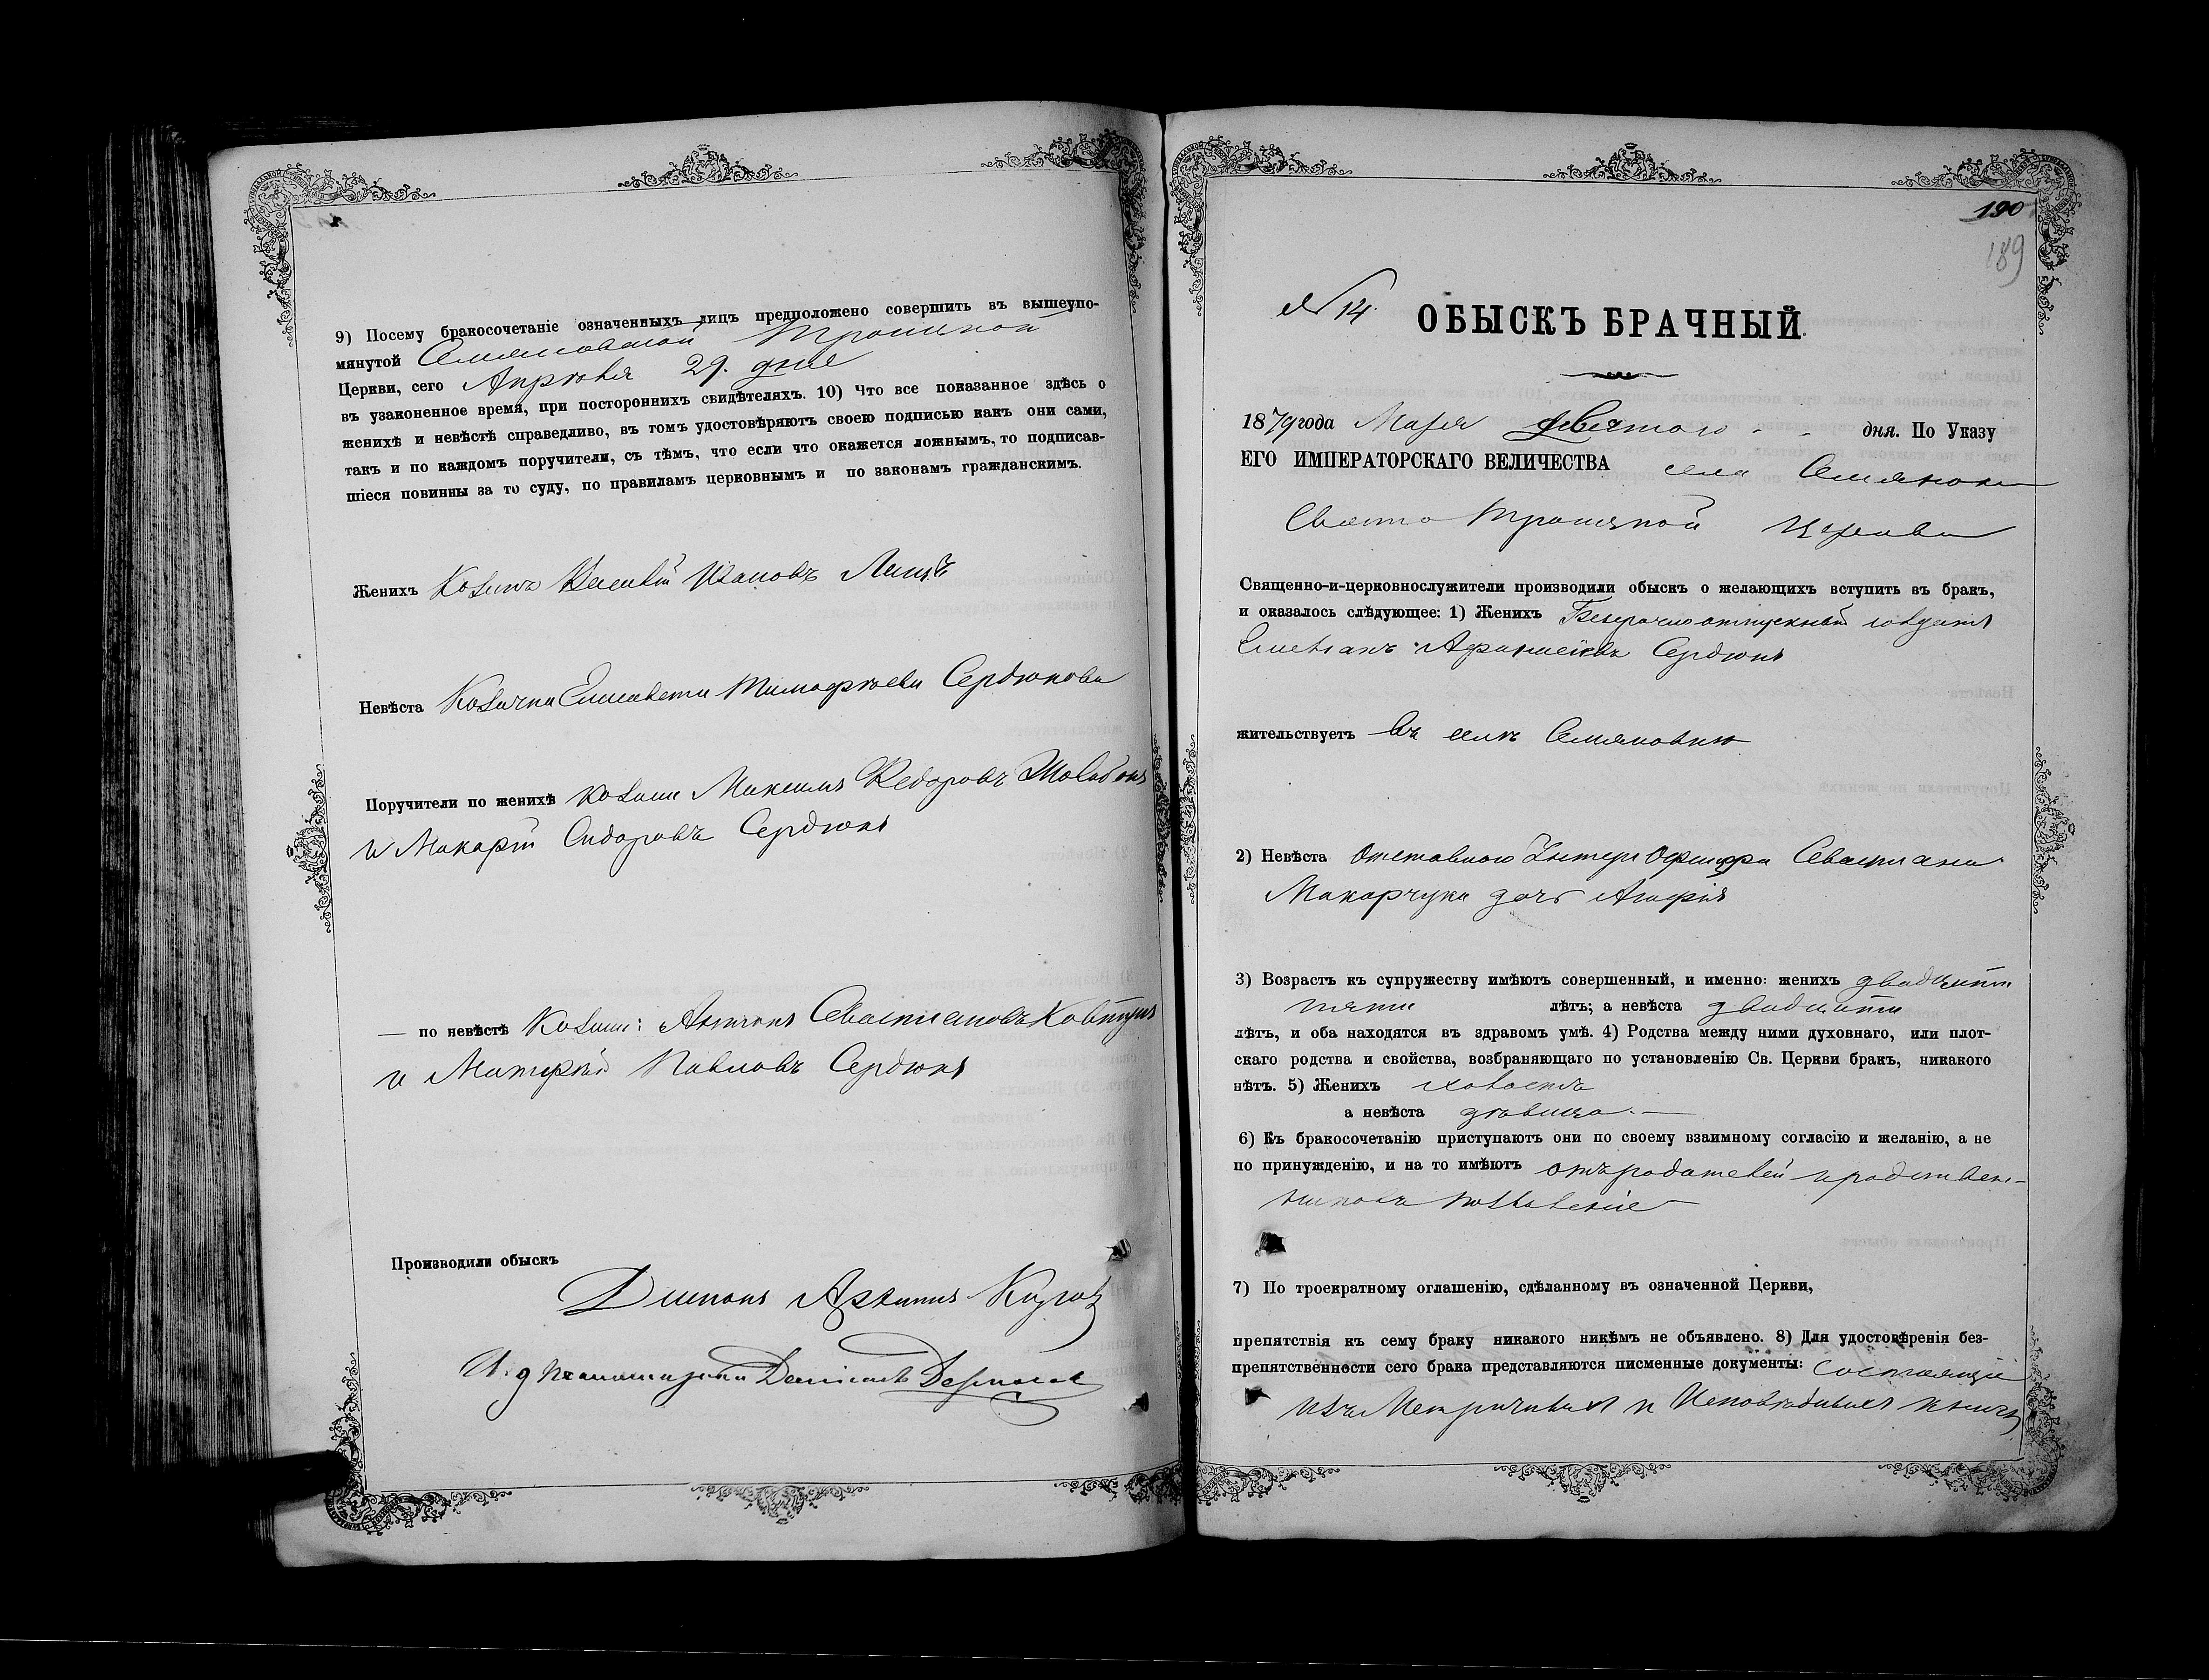 9) Посему бракосочетаніе означенныхъ лицъ предположено совершить въ вышеупо-
мянутой Семяновской Троицкой
Церкви, сего Апрѣля 29. дня
въ узаконенное время, при постороннихъ свидѣтеляхъ. 10) Что все показанное здѣсь о
женихѣ и невѣстѣ справедливо, въ томъ удостовѣряютъ своею подписью какъ они сами,
такъ и по каждомъ поручители, съ тѣмъ, что если что окажется ложнымъ, то подписав-
шіеся повинны за то суду, по правиламъ церковнымъ и по законамъ гражданскимъ.
Женихъ Козакъ Василій Ивановъ
Невѣста Козачка Елисавета Тимофѣева Сердюкова
Поручители по женихѣ козаки Максимъ Федоровъ
и Макарій Сидоровъ Сердюкъ
— по невѣстѣ Козаки: Антонъ Севастіановъ Ковтунъ
и Матфѣй Павловъ Сердюкъ
Производили обыскъ
И. д Псаломщика
190
189
№ 14.
ОБЫСКЪ БРАЧНЫЙ.
1879 года Мая девятого - - дня. По Указу
ЕГО ИМПЕРАТОРСКАГО ВЕЛИЧЕСТВА села Семяновки
Свято Троицкой Церкви
Священно-и-церковнослужители производили обыскъ о желающихъ вступить въ бракъ,
и оказалось слѣдующее: 1) Женихъ Безсрочноотпускный солдатъ
Сердюкъ
жительствуетъ въ селѣ Семяновкѣ
2) Невѣста Отставного Унтеръ Офицера Севастіана
Макарчука дочь Агафія
3) Возрастъ къ супружеству имѣютъ совершенный, и именно: женихъ двадцати
пяти лѣтъ; а невѣста двадцати
лѣтъ, и оба находятся въ здравомъ умѣ. 4) Родства между ними духовнаго, или плот-
скаго родства и свойства, возбраняющаго по установленію Св. Церкви бракъ, никакого
нѣтъ. 5) Женихъ холостъ
а невѣста дѣвица. —
6) Къ бракосочетанію приступаютъ они по своему взаимному согласію и желанію, а не
по принужденію, и на то имѣютъ отъ родителей и родствен-
никовъ позволеніе
7) По троекратному оглашенію, сдѣланному въ означенной Церкви,
препятствія къ сему браку никакого никѣмъ не объявлено. 8) Для удостовѣренія без-
препятственности сего брака представляются писменные документы: состоящіе
изъ Метричныхъ и Исповѣдныхъ книгъ